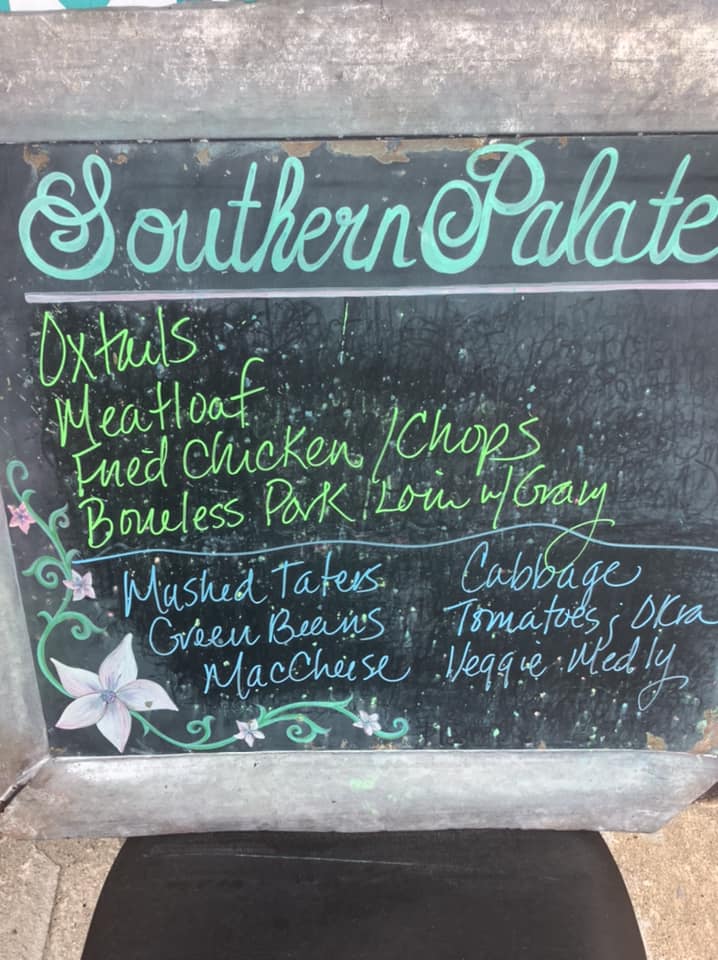 Southern Palate
Oxtails
Meatloaf
Fried Chicken / Chops
Boneless Pork Loin w/ Gravy
Mashed Taters
Green Beans
MacCheese
Cabbage
Tomatoes & Okra
Veggie Medly